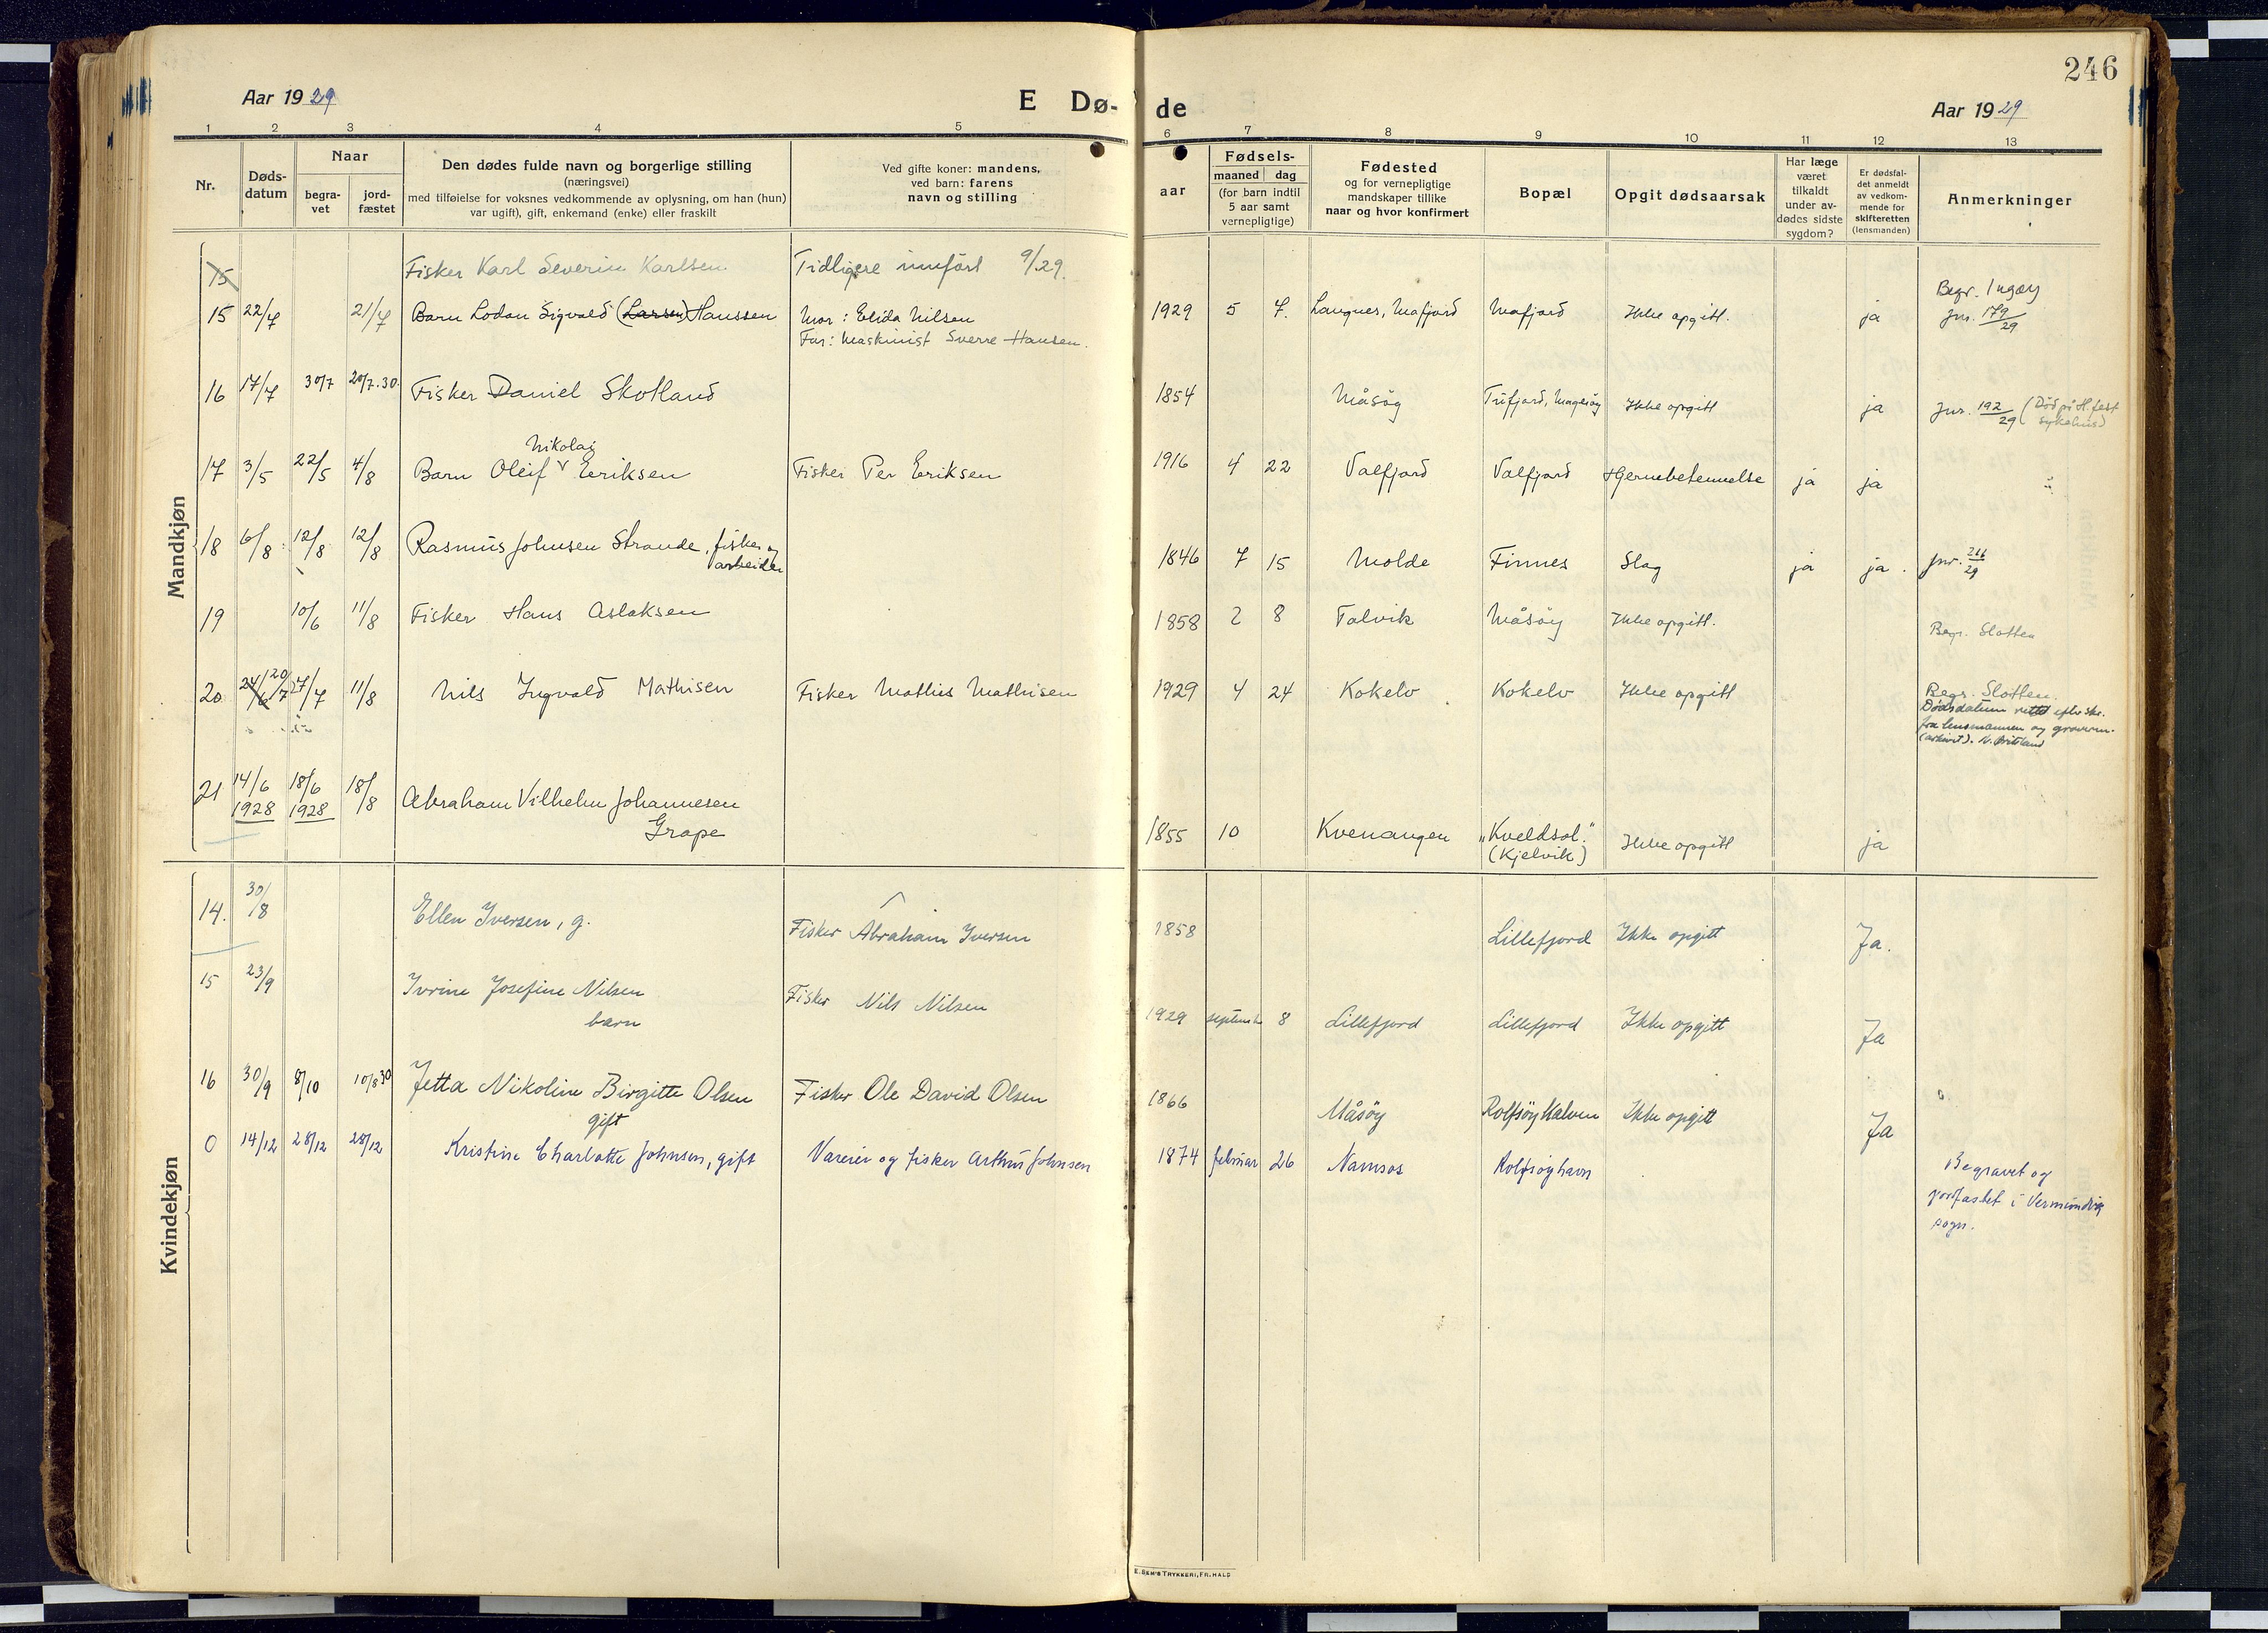 246
Aar 1929 E Dø- de Aar 1929
1 2 3 4 5 6 7 8 9 10 11 12 13
Nr.
Døds-
datum
Naar
begra-
vet
jord-
fæstet
Den dødes fulde navn og borgerlige stilling
(næringsvei)
med tilføielse for voksnes vedkommende av oplysning, om han (hun)
var ugift), gift, enkemand (enke) eller fraskilt
Ved gifte koner: mandens,
ved barn: farens
navn og stilling
aar
Fødsels-
maaned dag
(for barn indtil
5 aar samt
vernepligtige)
Fødested
og for vernepligtige
mandskaper tillike
naar og hvor konfirmert
Bopæl
Opgit dødsaarsak
Har læge
været
tilkaldt
under av-
dødes sidste
sygdom?
Er dødsfal-
det anmeldt
av vedkom-
mende for
skifteretten
(lensmanden)
Anmerkninger
Mandkjøn
15 Fisker Karl Severin Karlsen Tidligere innført 9/29.
15 22/7 21/7 Barn Lodan Sigvald (Larsen) Hanssen Mor: Elida Nilsen 1929 5 7. Langnes, Mafjord Mafjord Ikke opgitt. ja Begr. Ingøy
Far: Maskinist Sverre Hansen. Jnr. 179/29
16 17/7 30/7 20/7.30. Fisker Daniel Skotland 1854 Måsøy Tufjord, Magerøy Ikke opgitt ja Jnr. 192/29 (Død på H.fest
sykehus)
Nikolai
17 3/5 22/5 4/8 Barn Oleif Eeriksen Fisker Per Eriksen 1916 4 22 Valfjord Valfjord Hjernebetennelse ja ja
18 6/8 12/8 12/8 Rasmus Johnsen Strande, fisker og 1846 7 15 Molde Finnes Slag ja ja. Jnr. 216/29
arbeider
19 10/6 11/8 Fisker Hans Aslaksen 1858 2 8 Talvik Måsøy Ikke opgitt. Begr. Slotten
20 24/6 20/7 27/7 11/8 Nils Ingvald Mathisen Fisker Mathis Mathisen 1929 4 24 Kokelv Kokelv Ikke opgitt Begr. Slotten.
Dødsdatum rettet efter skr.
fra lensmannen og graveren.
(arkivet).
21 14/6 1928 18/6 1928 18/8 Abraham Vilhelm Johannesen
Grape 1855 10 Kvenangen "Kveldsol." Ikke opgitt ja
(Kjelvik)
Kvindekjøn
14. 30/8 Ellen Iversen, g. Fisker Abraham Iversen 1858 Lillefjord Ikke opgitt Ja.
15 23/9 Ivrine Josefine Nilsen Fisker Nils Nilsen 1929 september 8 Lillefjord Lillefjord Ikke opgitt Ja
barn
16 30/9 8/10 10/8 30 Jetta Nikoline Birgitte Olsen Fisker Ole David Olsen 1866 Måsøy Rolfsøyhalvøen Ikke opgitt Ja
gift
0 14/12 28/12 28/12 Kristine Charlotte Johnsen, gift Vareier og fisker Arthur Johnsen 1874 februar 26 Namsos Rolfsøyhavn Begravet og
jordfæstet i
sogn.
E. SEM'S TRYKKERI, FR.HALD